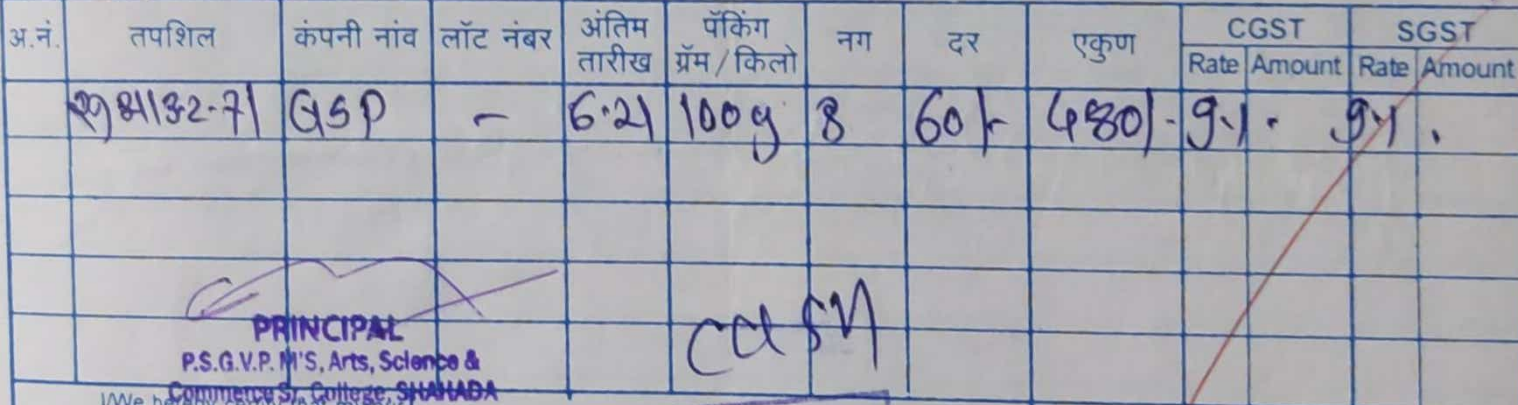 अ.नं. तपशिल कंपनी नांव लॉट नंबर अंतिम तारीख पॅकिंग ग्रॅम / किलो नग दर एकुण CGST SGST
Rate Amount Rate Amount
GSP - 6.21 100g 8 60/- 480/- 9% 9%
cash
PRINCIPAL
P.S.G.V.P. M'S, Arts, Science &
Commerce Sr. College, SHAHADA
I/We